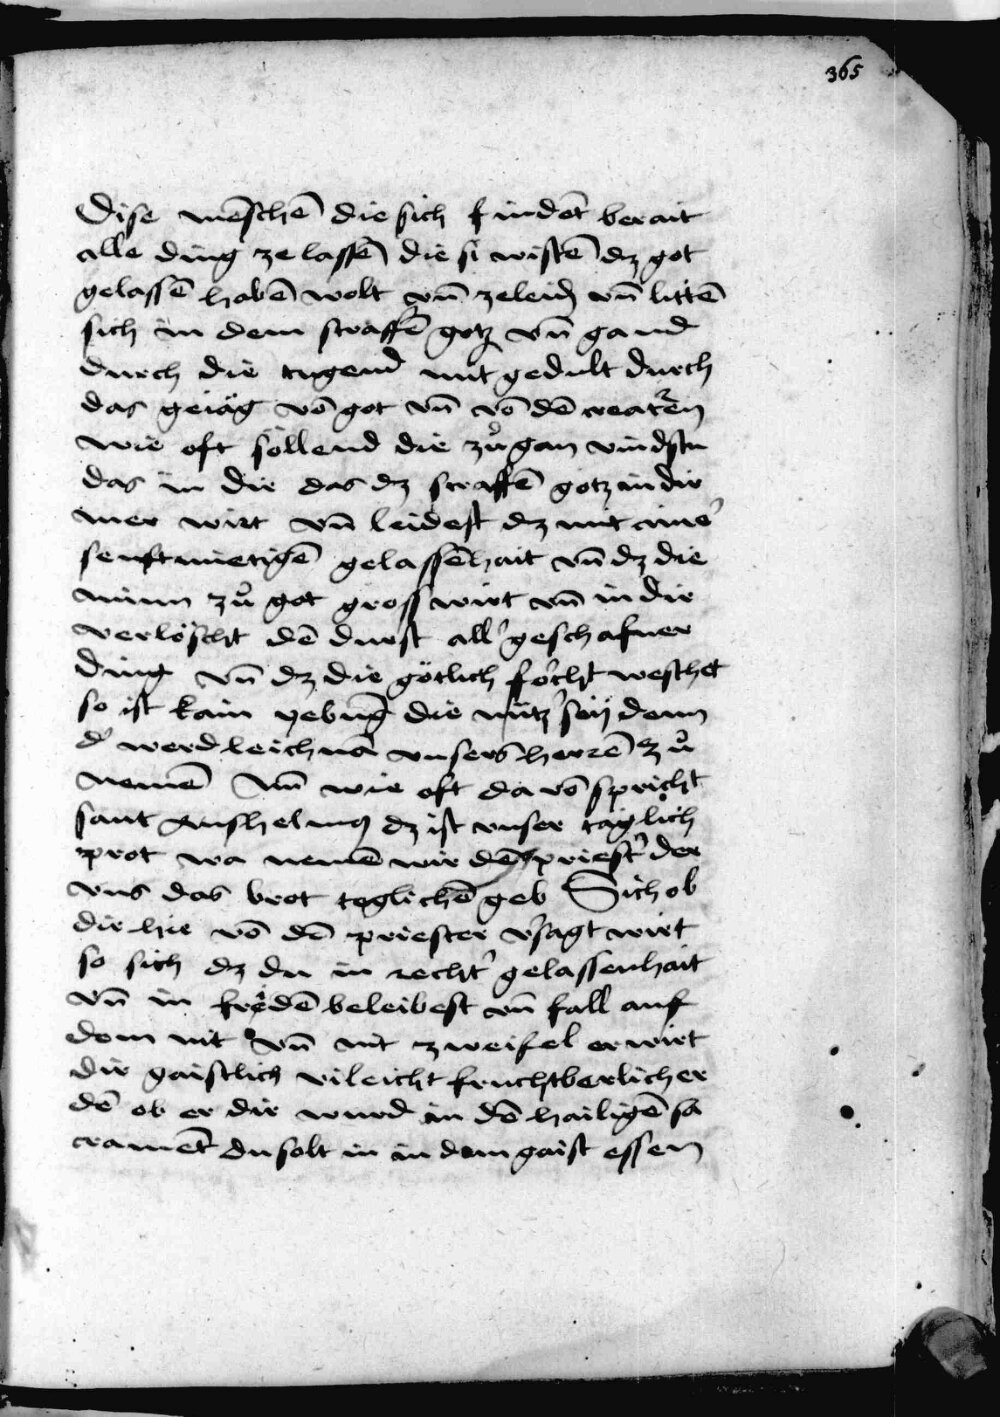 365
Dise mēschē die sich findēt berait
alle ding ze lassē die si wistē dz got
gelassē habē wolt vn̄ zeleidꝫ vn̄ littē
sich in dem straffē gotz vn̄ gand
durch die tugend mit gedult durch
das geiäg vō got vn̄ vō dē creatᷣen
wie oft söllend die zů gan vindstu
das in dir das dz straffē gotz in dir
mer wirt vn̄ leidest dz mit aineᷣ
senftmietigē gelassēhait vn̄ dz die
minn zů got gross wirt vn̄ in dir
verlöscht dē durst allᷣ geschafner
ding vn̄ dz die götlich forcht weschet
so ist kain yebūg die nützᷣ seÿ denn
dᷣ werd leichnā vnsers herrē zů
nemē Nun wie oft da vō spricht
sant Anshelmꝯ dz ist vnser täglich
prot wa nemē wir dē priestᷣ der
vns das brot teglichē geb Sich ob
dir hie vō dē priester vᷣsagt wirt
so sich dz du in rechtᷣ gelassenhait
vn̄ in fredē beleibest vn̄ fall auf
dem nit vn̄ nit zweifel er wirt
dir gaistlich vileicht fruchtberlicher
dē ob er dir wurd in dē hailigē sa
cramēt du solt in in dem gaist essen